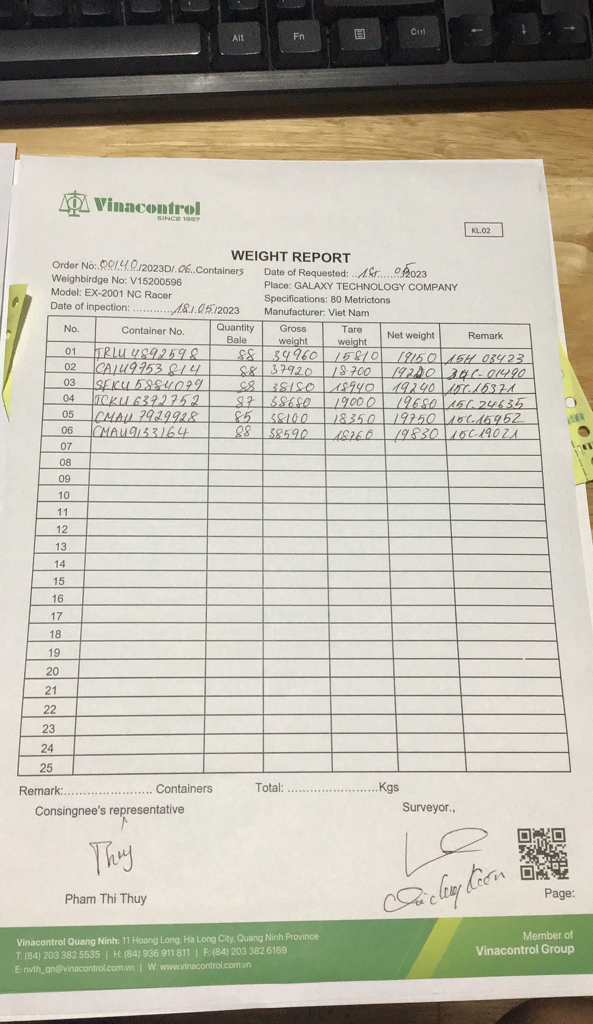 Alt Fn Ctrl ← ↓ →
Vinacontrol
SINCE 1957
KL.02
WEIGHT REPORT
Order No: 00140/2023D/.06..Containers
Date of Requested: ...18... 05/2023
Weighbirdge No: V15200596
Place: GALAXY TECHNOLOGY COMPANY
Model: EX-2001 NC Racer
Specifications: 80 Metrictons
Date of inpection: ............18/.05/2023
Manufacturer: Viet Nam
No. Container No. Quantity Bale Gross weight Tare weight Net weight Remark
01 TRLU 4892598 88 34960 15810 19150 15H 03423
02 CAIU9753814 88 37920 18700 C-01490
03 SEKU 5884079 88 38180 18940 19240 15C.15371
04 TCKU 6392752 87 38680 19000 19680 15C.24635
05 CMAU 7929928 85 38100 18350 19750 15C.15952
06 CMAU9133164 88 38590 18760 19830 15C.19021
07
08
09
10
11
12
13
14
15
16
17
18
19
20
21
22
23
24
25
Remark:...................... Containers Total: .......................Kgs
Consingnee's representative
Surveyor.,
Thuy
Pham Thi Thuy
Page:
Vinacontrol Quang Ninh: 11 Hoang Long, Ha Long City, Quang Ninh Province
T: (84) 203 382 5535 | H: (84) 936 911 811 | F: (84) 203 382 6169
E: nvth_qn@vinacontrol.com.vn | W: www.vinacontrol.com.vn
Member of
Vinacontrol Group